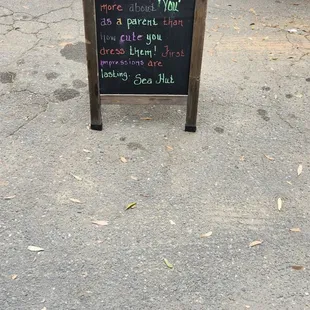 more about "YOU"
as a parent than
how cute you
dress them! First
impressions are
lasting. Sea Hut